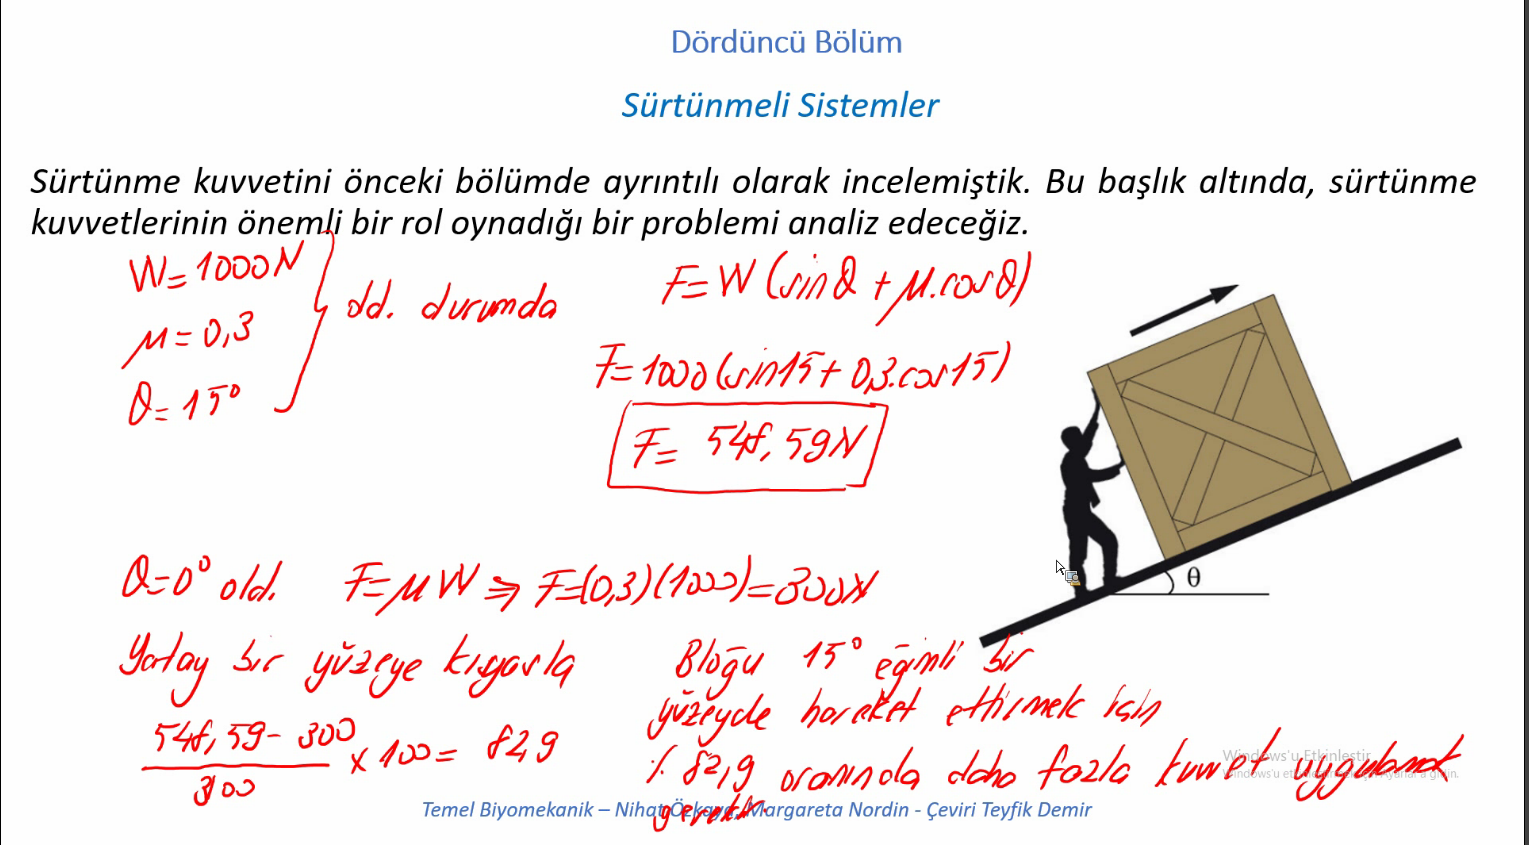 Dördüncü Bölüm
Sürtünmeli Sistemler
Sürtünme kuvvetini önceki bölümde ayrıntılı olarak incelemiştik. Bu başlık altında, sürtünme
kuvvetlerinin önemli bir rol oynadığı bir problemi analiz edeceğiz.
W=1000N
μ=0,3
θ=15°
old. durumda
F=W(sinθ+μ.cosθ)
F=1000(sin15+0,3.cos15)
F= 548,59N
θ
θ=0° old. F=μW⇒F=(0,3)(1000)=300N
Yatay bir yüzeye kıyasla
548,59-300
300
x100= 82,9
Bloğu 15° eğimli bir
yüzeyde hareket ettirmek için
% 82,9 oranında daha fazla kuvvet uygulamak
gerekir.
Windows'u Etkinleştir
Temel Biyomekanik – Nihat Özkaya, Margareta Nordin - Çeviri Teyfik Demir